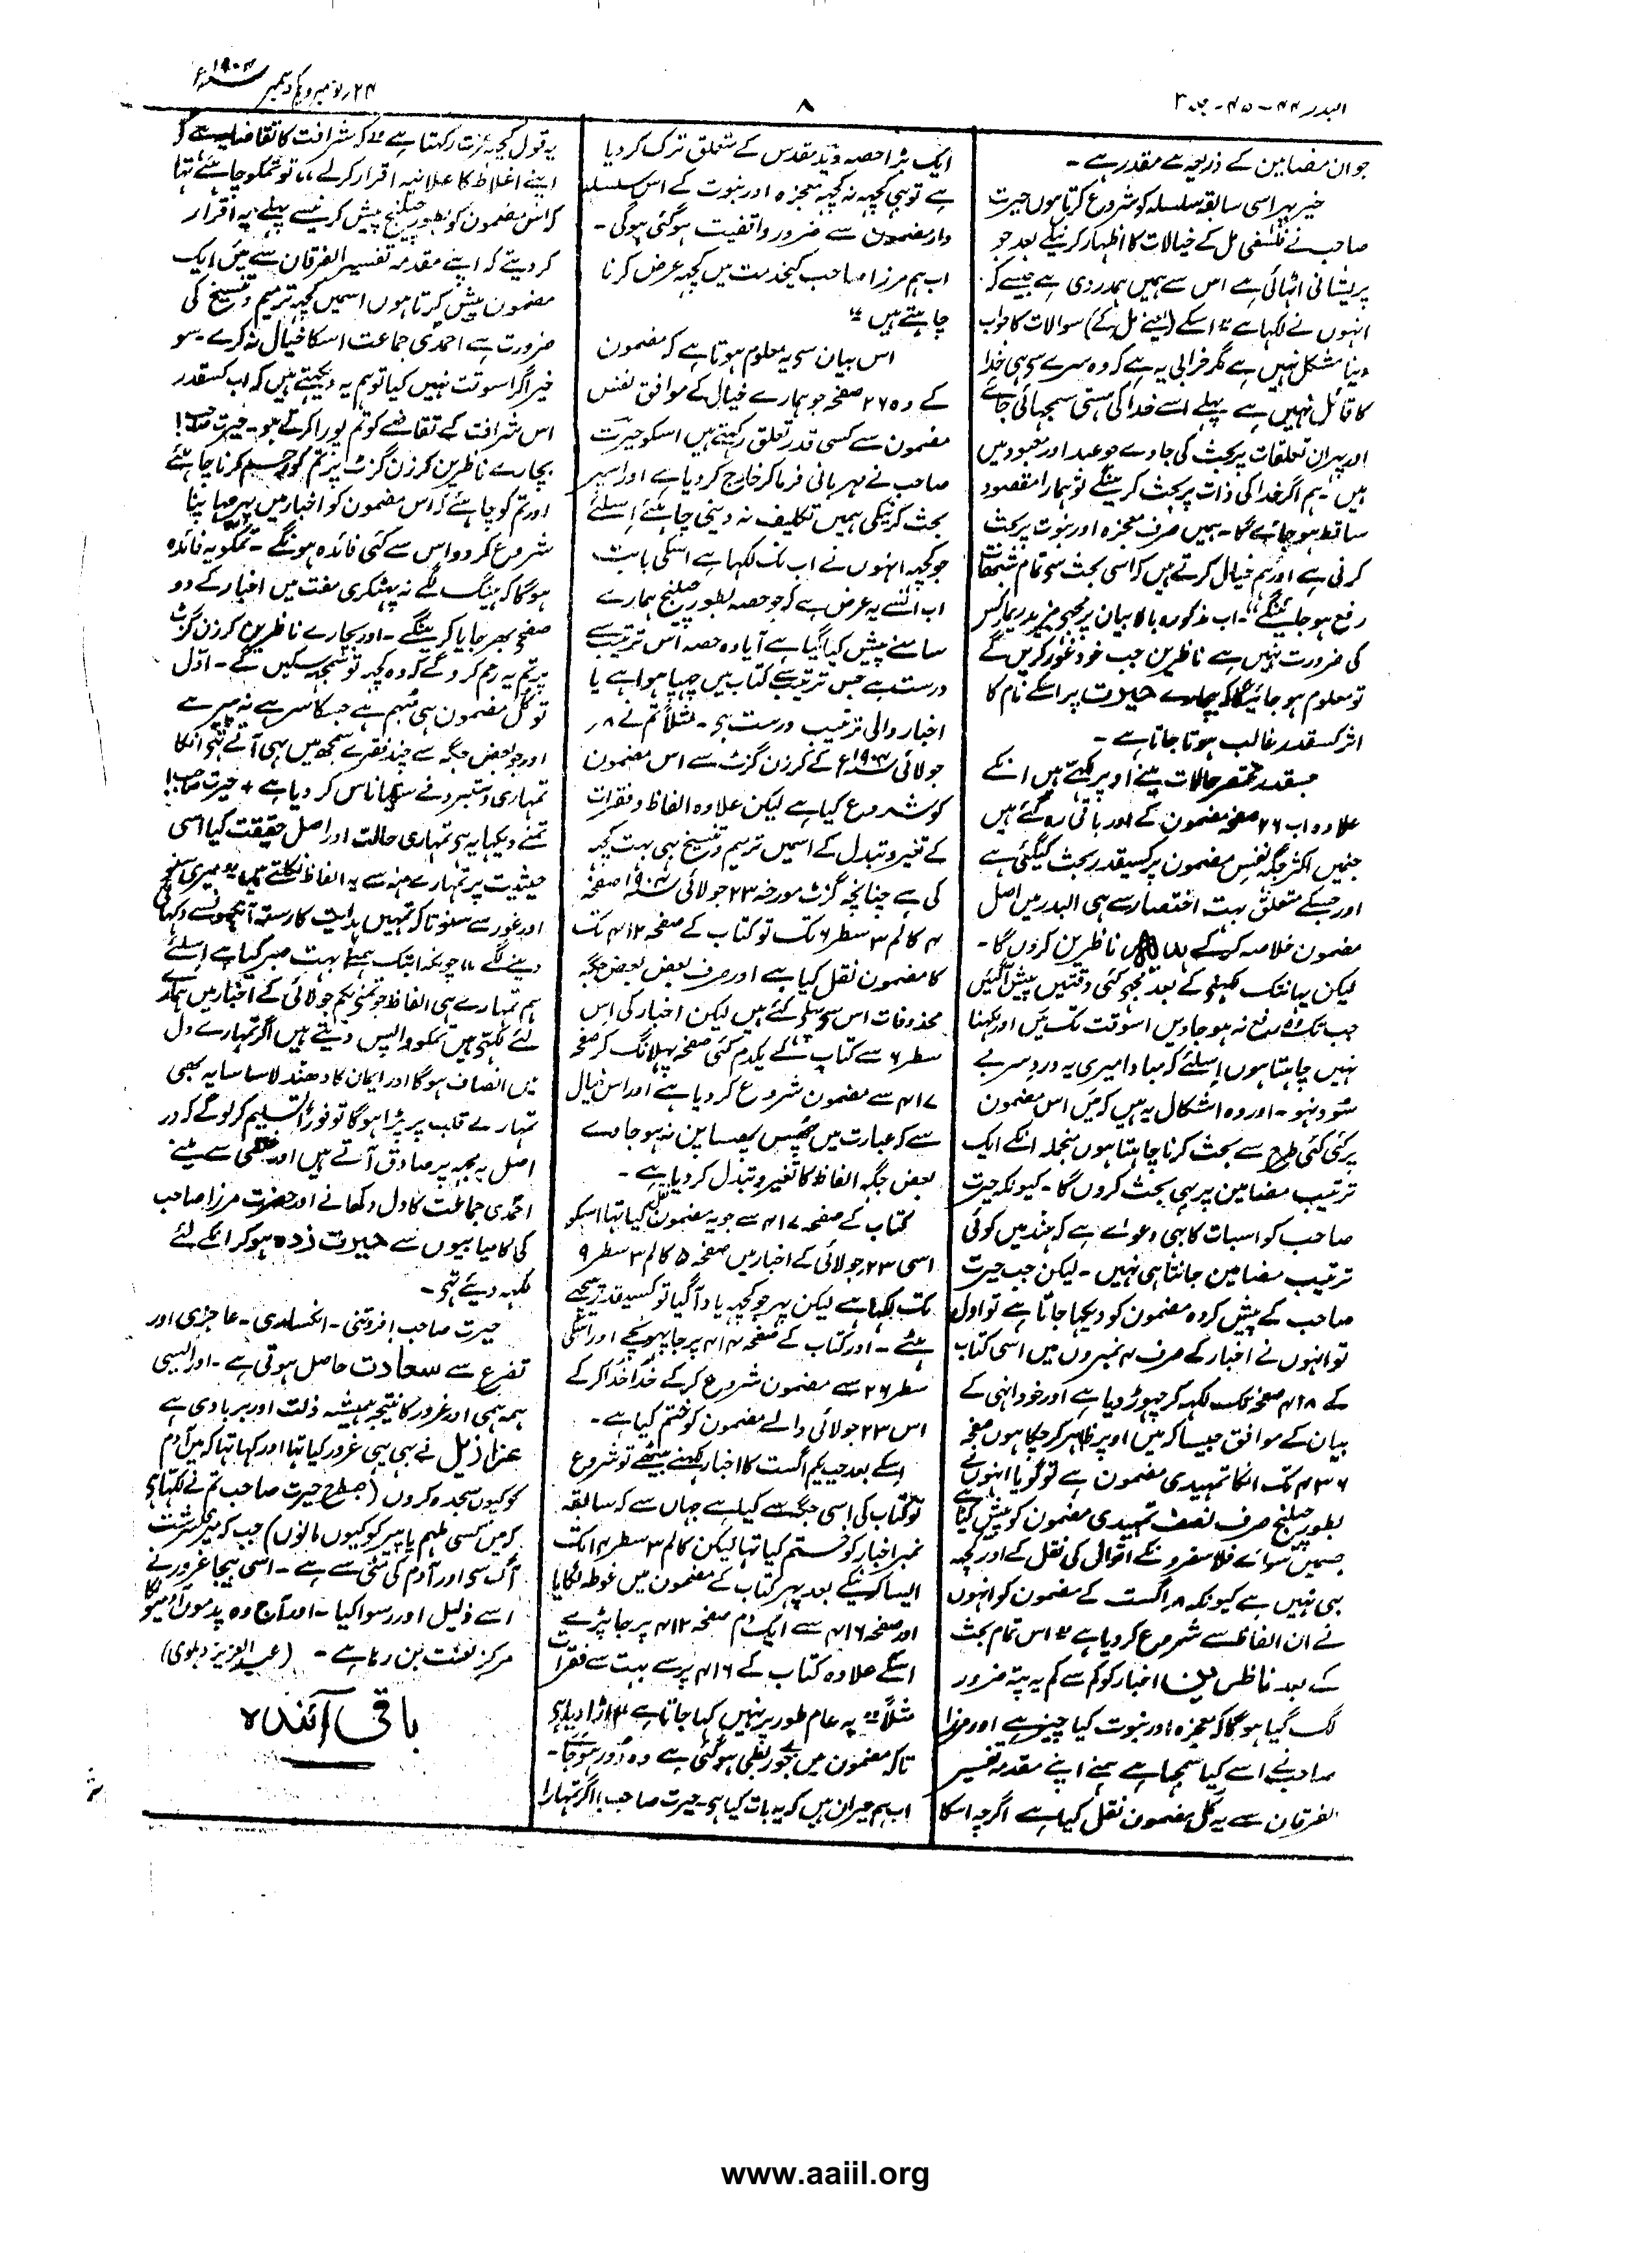 البدر ۴۴-۴۵- جلد ۳
۸
۲۴ نومبر و یکم دسمبر ۱۹۰۴ء
جو ان مضامین کے ذریعہ سے مقدر ہے -
خیر پہر اسی سابقہ سلسلہ کو شروع کرتا ہوں حیرت
صاحب نے فلسفی مل کے خیالات کا اظہار کرنیکے بعد جو
پریشانی اٹہائی ہے اس سے ہمیں ہمدردی ہے جیسے کہ
انہوں نے لکہا ہے " اسکے (یعنے مل کے) سوالات کا جواب
دینا مشکل نہیں ہے مگر خرابی یہ ہے کہ وہ سرے سے ہی خدا
کا قائل نہیں ہے پہلے اسے خدا کی ہستی سمجہائی جائے
اور پہر ان تعلقات پر بحث کی جاوے جو عبد اور معبود میں
ہیں - ہم اگر خدا کی ذات پر بحث کرینگے تو ہمارا مقصود
ساقط ہو جائے گا - ہمیں صرف معجزہ اور نبوت پر بحث
کرنی ہے اور ہم خیال کرتے ہیں کہ اسی بحث سے تمام شبہات
رفع ہو جاینگے" - اب مذکورہ بالا بیان پر مجہے مزید ریمارکس
کی ضرورت نہیں ہے ناظرین جب خود غور کریں گے
تو معلوم ہو جائیگا کہ بیچارے حیرت پر اسکے نام کا
اثر کسقدر غالب ہوتا جاتا ہے -
جسقدر مختصر حالات مینے اوپر لکہے ہیں انکے
علاوہ اب ۲۶ صفحہ مضمون کے اور باقی رہ گئے ہیں
جنمیں اکثر جگہ نفس مضمون پر کسیقدر بحث کیگئی ہے
اور جسکے متعلق بہت اختصار سے ہی البدر میں اصل
مضمون خلاصہ کرکے ناظرین کروں گا -
لیکن یہانتک لکہنے کے بعد مجہے کئی دقتیں پیش آگئیں
جب تک وہ رفع نہ ہو جاویں اسوقت تک میں اور لکہنا
نہیں چاہتا ہوں اسلئے کہ مبادا میری یہ درد سر بے
سود نہو - اور وہ اشکال یہ ہیں کہ میں اس مضمون
پر کئی کئی طرح سے بحث کرنا چاہتا ہوں منجملہ انکے ایک
ترتیب مضامین پر ہی بحث کروں گا - کیونکہ حیرت
صاحب کو اسبات کا بہی دعوے ہے کہ ہند میں کوئی
ترتیب مضامین جانتا ہی نہیں - لیکن جب حیرت
صاحب کے پیش کردہ مضمون کو دیکہا جاتا ہے تو اول
تو انہوں نے اخبار کے صرف ۴ نمبروں میں اسی کتاب
کے ۴۱۸ صفحہ تک لکہہ کر چہوڑ دیا ہے اور خود انہی کے
بیان کے موافق جیسا کہ میں اوپر ظاہر کر چکا ہوں صفحہ
۴۳۶ تک انکا تمہیدی مضمون ہے تو گویا انہوں نے
بطور چیلنج صرف نصف تمہیدی مضمون کو پیش کیا ہے
جسمیں سوائے فلاسفروں کے اقوال کی نقل کے اور کچہہ
بہی نہیں ہے کیونکہ ۸ اگست کے مضمون کو انہوں
نے ان الفاظ سے شروع کر دیا ہے " اس تمام بحث
کے بعد ناظرین اخبار کو کم سے کم یہ پتہ ضرور
لگ گیا ہوگا کہ معجزہ اور نبوت کیا چیز ہے اور مرزا
صاحب نے اسے کیا سمجہا ہے ہمنے اپنے مقدمہ تفسیر
الفرقان سے یہ کل مضمون نقل کیا ہے اگرچہ اسکا
ایک بڑا حصہ وید مقدس کے متعلق ترک کر دیا
ہے تو بہی کچہہ نہ کچہہ معجزہ اور نبوت کے اس سلسلہ
وار مضمون سے ضرور واقفیت ہو گئی ہوگی -
اب ہم مرزا صاحب کیخدمت میں کچہہ عرض کرنا
چاہتے ہیں "
اس بیان سے یہ معلوم ہوتا ہے کہ مضمون
کے وہ ۲۶ صفحہ جو ہمارے خیال کے موافق نفس
مضمون سے کسی قدر تعلق رکہتے ہیں اسکو حیرت
صاحب نے مہربانی فرما کر خارج کر دیا ہے اور اسپر
بحث کرنیکی ہمیں تکلیف نہ دینی چاہئے اسلئے
جو کچہہ انہوں نے اب تک لکہا ہے اسکی بابت
اب انسے یہ عرض ہے کہ جو حصہ بطور چیلنج ہمارے
سامنے پیش کیا گیا ہے آیا وہ حصہ اس ترتیب سے
درست ہے جس ترتیب سے کتاب میں چہپا ہوا ہے یا
اخبار والی ترتیب درست ہے - مثلاً تم نے ۸
جولائی ۱۹۰۴ء کے کرزن گزٹ سے اس مضمون
کو شروع کیا ہے لیکن علاوہ الفاظ و فقرات
کے تغیر و تبدل کے اسمیں ترمیم و تنسیخ بہی بہت کچہہ
کی ہے چنانچہ گزٹ مورخہ ۲۳ جولائی ۱۹۰۴ صفحہ
۴ کالم ۳ سطر ۶ تک تو کتاب کے صفحہ ۴۱۲ تک
کا مضمون نقل کیا ہے اور صرف بعض بعض جگہ
محذوفات اس سے پہلے کئے ہیں لیکن اخبار کی اس
سطر ۶ سے کتاب کے یکدم کئی صفحہ پہلانگ کر صفحہ
۴۱۷ سے مضمون شروع کر دیا ہے اور اس خیال
سے کہ عبارت میں پہس پہساپن نہ ہو جاوے
بعض جگہ الفاظ کا تغیر و تبدل کر دیا ہے -
کتاب کے صفحہ ۴۱۷ سے جو یہ مضمون نقل کیا تہا اسکو
اسی ۲۳ جولائی کے اخبار میں صفحہ ۵ کالم ۳ سطر ۹
تک لکہا ہے لیکن پہر جو کچہہ یاد آگیا تو کسیقدر پیچہے
ہٹے - اور کتاب کے صفحہ ۴۱۴ پر جا پہونچے اور اسکی
سطر ۲۶ سے مضمون شروع کرکے خدا خدا کرکے
اس ۲۳ جولائی والے مضمون کو ختم کیا ہے -
اسکے بعد جب یکم اگست کا اخبار لکہنے بیٹہے تو شروع
تو کتاب کی اسی جگہ سے کیا ہے جہاں سے کہ سابقہ
نمبر اخبار کو ختم کیا تہا لیکن کالم ۳ سطر ۴ تک
ایسا کرنیکے بعد پہر کتاب کے مضمون میں غوطہ لگایا
اور صفحہ ۴۱۶ سے ایک دم صفحہ ۴۱۲ پر جا پڑے
اسکے علاوہ کتاب کے ۴۱۶ پر سے بہت سے فقرات
مثلاً " یہ عام طور پر نہیں کہا جاتا ہے " اڑا دیا ہے
تاکہ مضمون میں جو بے ربطی ہو گئی ہے وہ دور ہو جائے -
اب ہم حیران ہیں کہ یہ بات کیا ہے - حیرت صاحب! اگر تمہارا
یہ قول کچہہ عزت رکہتا ہے " کہ شرافت کا تقاضا ہے کہ
اپنے اغلاط کا علانیہ اقرار کرلے " تو تمکو چاہئے تہا
کہ اس مضمون کو بطور چیلنج پیش کرنیسے پہلے یہ اقرار
کر دیتے کہ اپنے مقدمہ تفسیر الفرقان سے میں ایک
مضمون پیش کرتا ہوں اسمیں کچہہ ترمیم و تنسیخ کی
ضرورت ہے احمدی جماعت اسکا خیال نہ کرے - سو
خیر اگر اسوقت نہیں کیا تو ہم یہ دیکہتے ہیں کہ اب کسقدر
اس شرافت کے تقاضے کو تم پورا کرتے ہو - حیرت صاحب!
بچارے ناظرین کرزن گزٹ پر تم کو رحم کرنا چاہئے
اور تم کو چاہئے کہ اس مضمون کو اخبار میں پہر چہاپنا
شروع کر دو اس سے کئی فائدہ ہونگے - تمکو یہ فائدہ
ہوگا کہ ہینگ لگے نہ پہٹکری مفت میں اخبار کے دو
صفحے بہر جایا کرینگے - اور بچارے ناظرین کرزن گزٹ
پر تم یہ رحم کرو گے کہ وہ کچہہ تو سمجہہ سکیں گے - اول
تو کل مضمون ہی مبہم ہے جسکا سر ہے نہ پیر ہے
اور جو بعض جگہ سے چند فقرے سمجہہ میں بہی آتے تہے انکا
تمہاری دستبرد نے ستیاناس کر دیا ہے + حیرت صاحب!
تمنے دیکہا یہ ہے تمہاری حالت اور اصل حقیقت کیا اسی
حیثیت پر تمہارے منہ سے یہ الفاظ نکلتے ہیں " میری سنو
اور غور سے سنو تاکہ تمہیں ہدایت کا رستہ آنکہونسے دکہائی
دینے لگے " چونکہ ابتک ہمنے بہت صبر کیا ہے اسلئے
ہم تمہارے ہی الفاظ جو تمنے یکم جولائی کے اخبار میں ہمارے
لئے لکہے ہیں تمکو واپس دیتے ہیں اگر تمہارے دل
میں انصاف ہوگا اور ایمان کا دھندلا سا سایہ بھی
تمہارے قلب پر پڑا ہوگا تو فوراً تسلیم کر لو گے کہ در
اصل یہ مجہہ پر صادق آتے ہیں اور غلطی سے مینے
احمدی جماعت کا دل دکہانے اور حضرت مرزا صاحب
کی کامیابیوں سے حیرت زدہ ہو کر انکے لئے
لکہہ دیئے تہے -
حیرت صاحب! فروتنی - انکساری - عاجزی اور
تضرع سے سعادت حاصل ہوتی ہے - اور ایسی
ہمہ ہمی اور غرور کا نتیجہ ہمیشہ ذلت اور بربادی ہے
عزازیل نے بہی یہی غرور کیا تہا اور کہا تہا کہ میں آدم
کو کیوں سجدہ کروں (جسطرح حیرت صاحب تم نے لکہا ہے
کہ میں کسی ملہم یا پیر کو کیوں مانوں) جب کہ میری سرشت
آگ سے اور آدم کی مٹی سے ہے - اسی بیجا غرور نے
اسے ذلیل اور رسوا کیا - اور آج وہ پدموں آدمیوں کا
مرکز لعنت بن رہا ہے - (عبدالعزیز دہلوی)
باقی آئندہ
www.aaiil.org